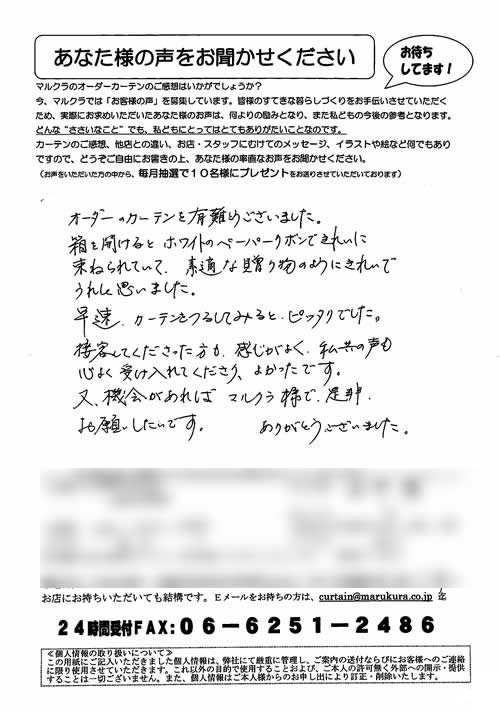 あなた様の声をお聞かせください
お待ち
してます!
マルクラのオーダーカーテンのご感想はいかがでしょうか?
今、マルクラでは「お客様の声」を募集しています。皆様のすてきな暮らしづくりをお手伝いさせていただく
ため、実際にお求めいただいたあなた様のお声は、何よりの励みとなり、また私どもの今後の参考となります。
どんな“ささいなこと”でも、私どもにとってはとてもありがたいことなのです。
カーテンのご感想、他店との違い、お店・スタッフにむけてのメッセージ、イラストや絵など何でもあり
ですので、どうぞご自由にお書きの上、あなた様の率直なお声をお聞かせください。
(お声をいただいた方の中から、毎月抽選で10名様にプレゼントをお送りさせていただいております)
オーダーのカーテンを有難うございました。
箱を開けると ホワイトのペーパーリボンできれいに
束ねられていて、素適な贈り物のようにきれいで
うれしく思いました。
早速、カーテンをつるしてみると、ピッタリでした。
接客してくださった方も、感じがよく、私共の声も
心よく受け入れてくださり、よかったです。
又、機会があれば マルクラ様で、是非、
お願いしたいです。 ありがとうございました。
お店にお持ちいただいても結構です。Eメールをお持ちの方は、curtain@marukura.co.jp 迄
24時間受付FAX:06-6251-2486
≪個人情報の取り扱いについて≫
この用紙にご記入いただきました個人情報は、弊社にて厳重に管理し、ご案内の送付ならびにお客様へのご連絡
に限り使用させていただきます。これ以外の目的で使用することおよび、ご本人の許可無く外部への開示・提供
することは一切ございません。また、個人情報はご本人様からのお申し出により訂正・削除いたします。